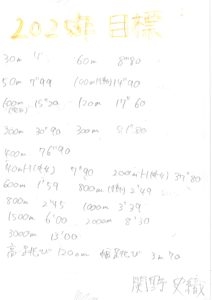 202 年 目標
30m 60m 8"80
50m 7"99 100m 14"90
100m 15"20 120m 17"60
200m 30"90 300m
400m 76"90
40mH 7"90 200mH 39"80
600m 1'59 800m 2'49
800m 2'45 1000m 3'29
1500m 6'00 2000m 8'30
3000m 13'00
高跳び 120cm 幅跳び 3m70
関野